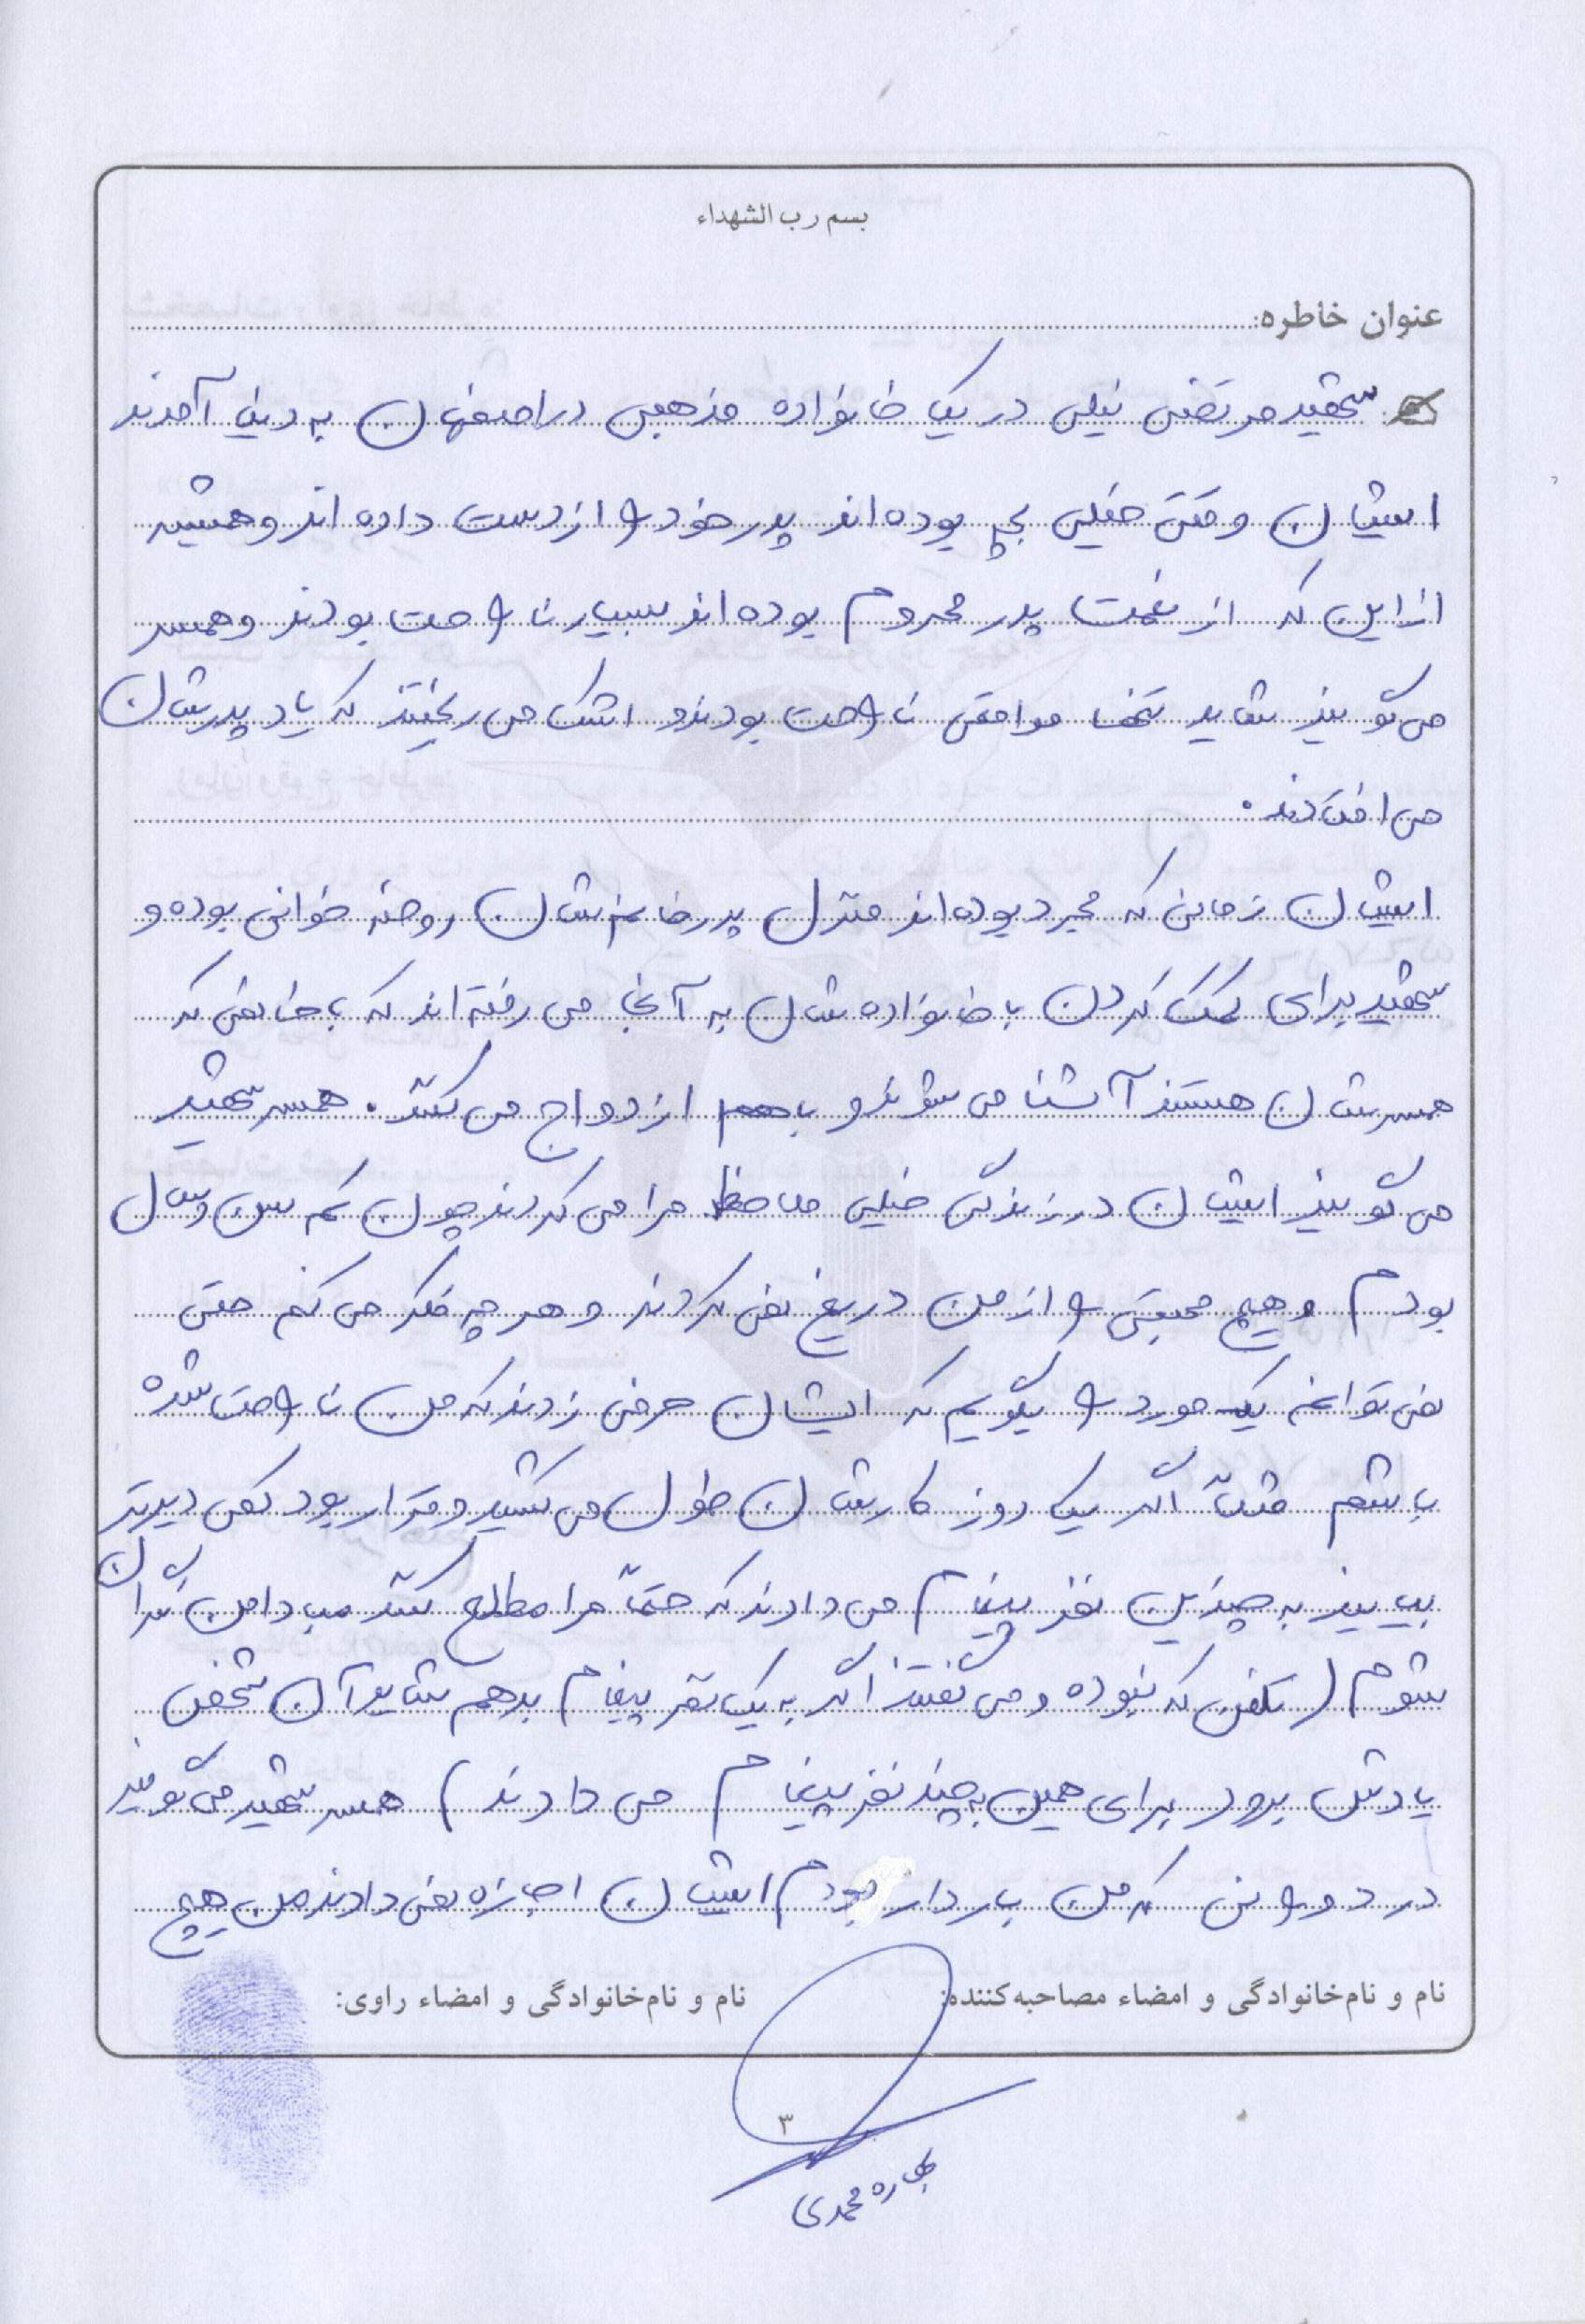 بسم رب الشهداء
عنوان خاطره:
شهید مرتضی نیلی در یک خانواده مذهبی در اصفهان به دنیا آمدند
ایشان وقتی خیلی بچه بوده اند پدر خود را از دست داده اند و همیشه
از این که از نعمت پدر محروم بوده اند بسیار ناراحت بودند و همسر
می گویند شاید تنها مواقعی ناراحت بودند و اشک می ریختند که یاد پدرشان
می افتادند.
ایشان زمانی که مجرد بوده اند منزل پدر خانم شان روضه خوانی بوده و
شهید برای کمک کردن با خانواده شان به آنجا می رفته اند که با خانمی که
همسرشان هستند آشنا می شوند و با هم ازدواج می کنند. همسر شهید
می گویند ایشان در زندگی خیلی ملاحظه مرا می کردند چون کم سن و سال
بودم و هیچ محبتی را از من دریغ نمی کردند و هر چه فکر می کنم حتی
نمی توانم یک مورد را بگویم که ایشان حرفی زدند که من ناراحت شده
باشم مثلاً اگر یک روز کارشان طول می کشید و قرار بود کمی دیرتر
بیایند به چندین نفر پیغام می دادند که حتماً مرا مطلع کنند مبادا من نگران
شوم (تلفن که نبوده و می گفتند اگر به یک نفر پیغام بدهم شاید آن شخص
یادش برود برای همین به چند نفر پیغام می دادند) همسر شهید می گویند
در دورانی که من باردار بودم ایشان اجازه نمی دادند من هیچ
نام و نام‌خانوادگی و امضاء مصاحبه‌کننده: نام و نام‌خانوادگی و امضاء راوی:
۳
بهاره محمدی